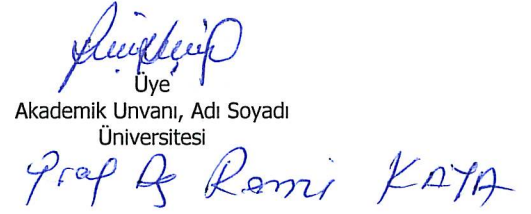 Üye
Akademik Unvanı, Adı Soyadı
Üniversitesi
Prof Dr Remzi KAYA